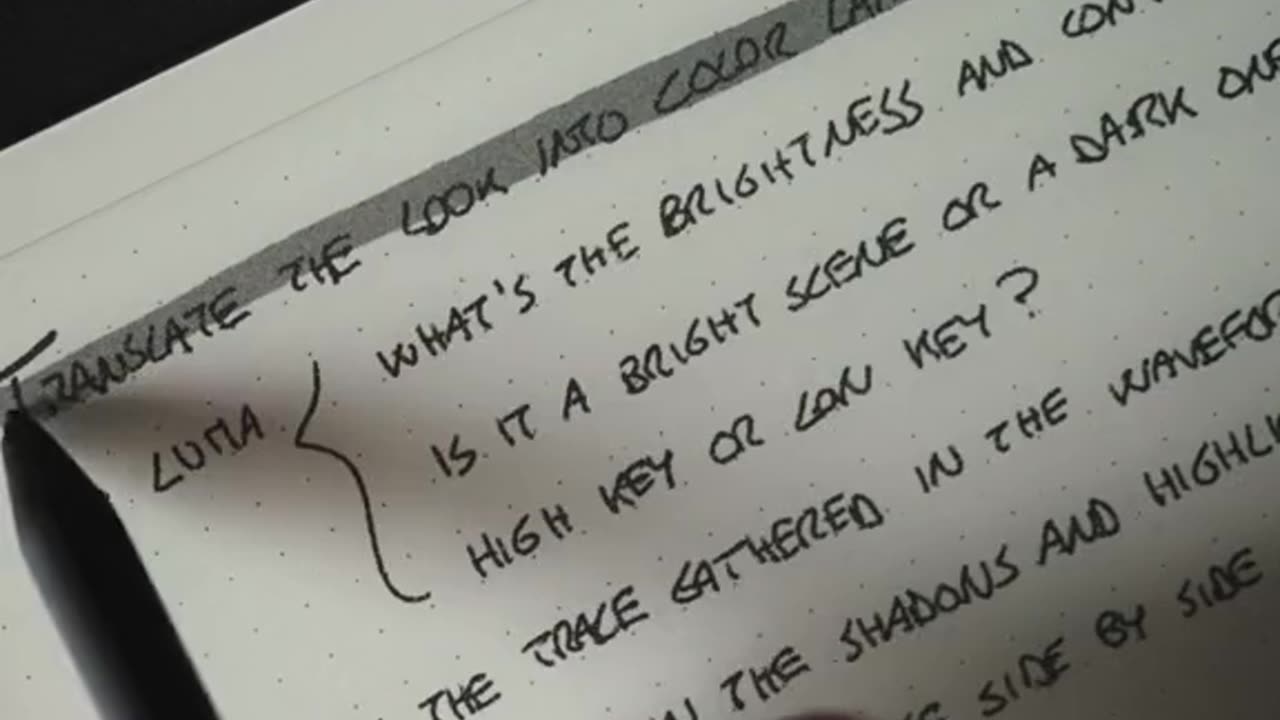 TRANSLATE THE LOOK INTO COLOR
LUMA
WHAT'S THE BRIGHTNESS AND
IS IT A BRIGHT SCENE OR A DARK
HIGH KEY OR LOW KEY?
THE TRACE GATHERED IN THE
THE SHADOWS AND
SIDE BY SIDE